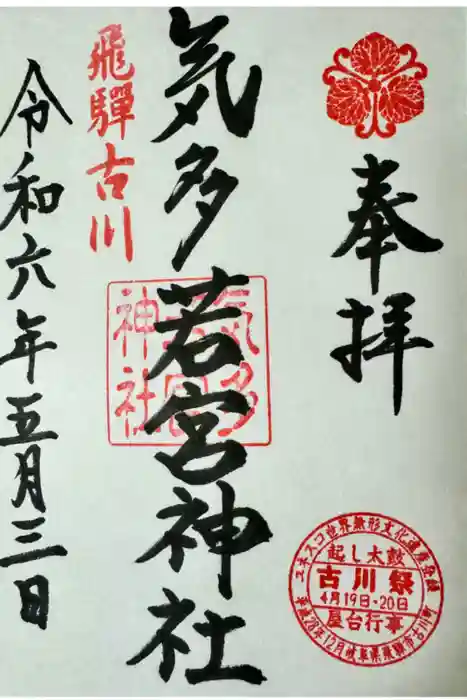 奉拝
気多若宮神社
飛騨古川
令和六年五月三日
気多
若宮
神社
ユネスコ世界無形文化遺産登録
起し太鼓
古川祭
4月19日・20日
屋台行事
平成28年12月岐阜県飛騨市古川町